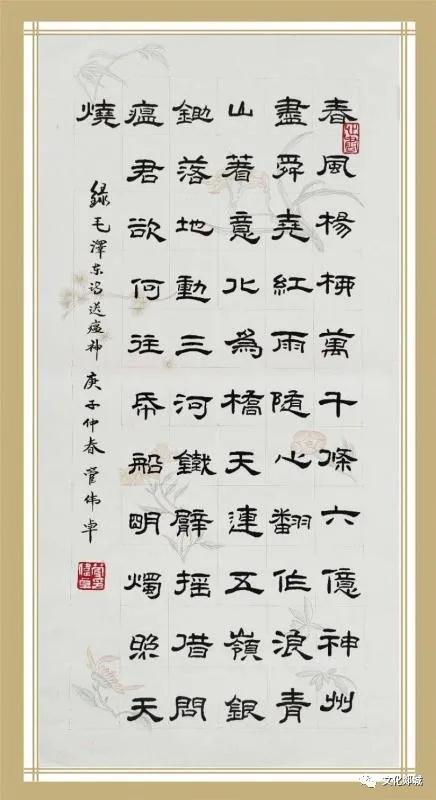 春風楊柳萬千條六億神州
盡舜堯紅雨隨心翻作浪青
山着意化為橋天連五嶺銀
鋤落地動三河鐵臂搖借問
瘟君欲何往帋船明燭照天
燒
錄毛澤东詩送瘟神 庚子仲春 管伟卓
文化郯城